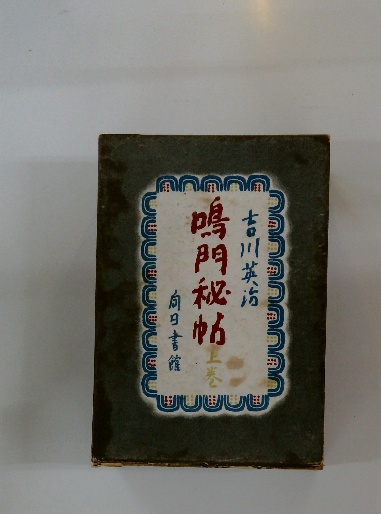 吉川英治
鳴門秘帖
上巻
向日書館